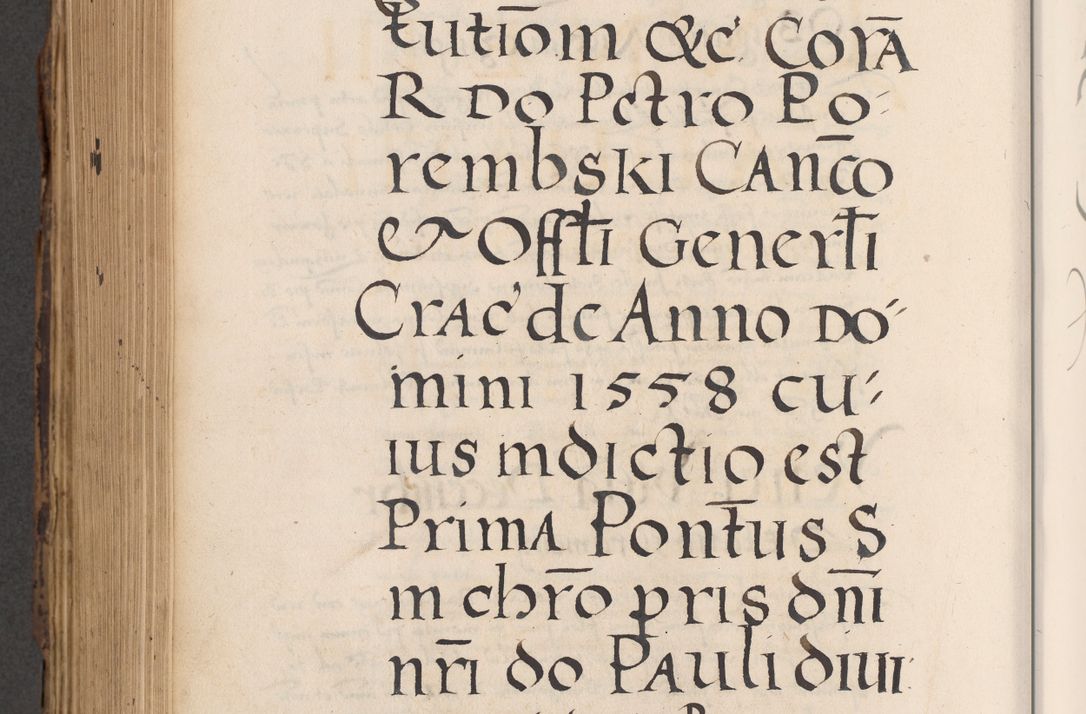 tutiōm &c̛ Corā
R DO Petro Po-
rembski Canc̄o
et Offt̄i Genert̄i
Crac̛ de Anno Do-
mini 1558 cu-
ius indictio est
Prima Pont̄us S
in chr̄o pris dn̄i
nr̄i do Pauli diui